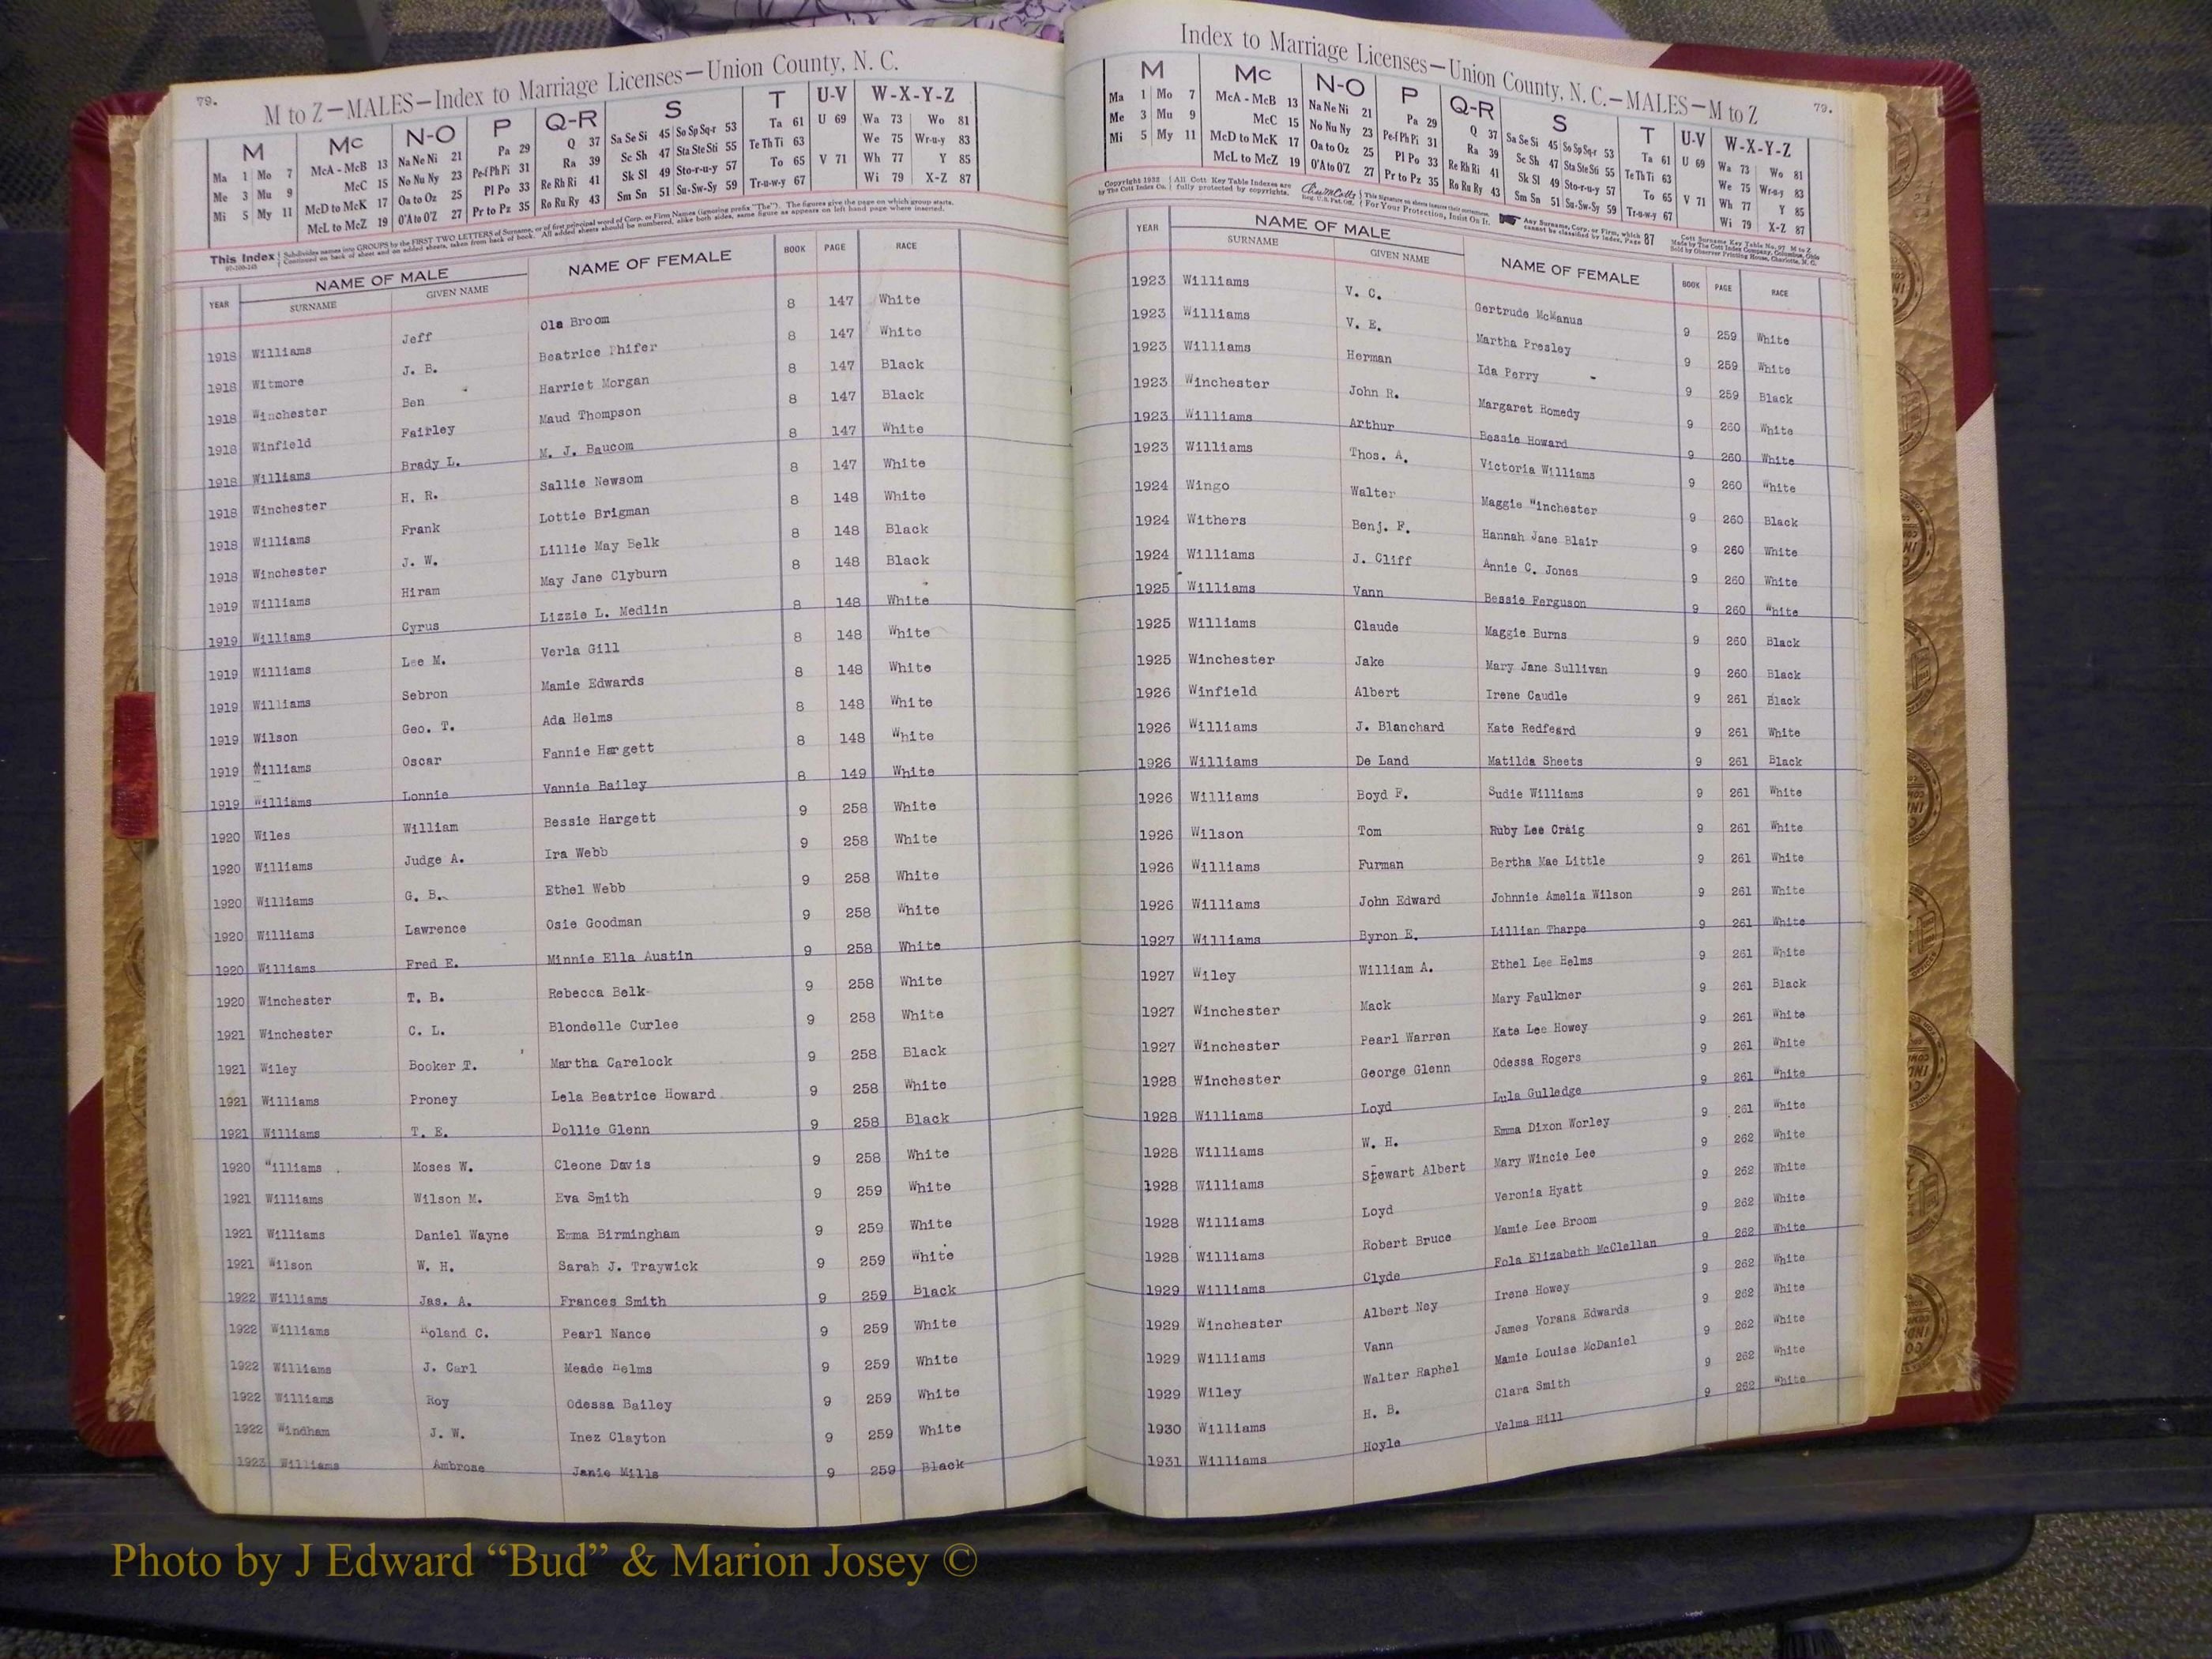 79.
M to Z—MALES—Index to Marriage Licenses—Union County, N. C.
M Mc N-O P Q-R S T U-V W-X-Y-Z
Ma 1 Mo 7 McA - McB 13 Na Ne Ni 21 Pa 29 Q 37 Sa Se Si 45 So Sp Sq-r 53 Ta 61 U 69 Wa 73 Wo 81
Me 3 Mu 9 McC 15 No Nu Ny 23 Pe-f Ph Pi 31 Ra 39 Sc Sh 47 Sta Ste Sti 55 Te Th Ti 63 We 75 Wr-u-y 83
Mi 5 My 11 McD to McK 17 Oa to Oz 25 Pl Po 33 Re Rh Ri 41 Sk Sl 49 Sto-r-u-y 57 To 65 V 71 Wh 77 Y 85
McL to McZ 19 O'A to O'Z 27 Pr to Pz 35 Ro Ru Ry 43 Sm Sn 51 Su-Sw-Sy 59 Tr-u-w-y 67 Wi 79 X-Z 87
This Index Subdivides names into GROUPS by the FIRST TWO LETTERS of Surname, or of first principal word of Corp. or Firm Names (ignoring prefix "The"). The figures give the page on which group starts.
Continued on back of sheet and on added sheets, taken from back of book. All added sheets should be numbered, alike both sides, same figure as appears on left hand page where inserted.
YEAR NAME OF MALE NAME OF FEMALE BOOK PAGE RACE
SURNAME GIVEN NAME
1918 Williams Jeff Ola Broom 8 147 White
1918 Witmore J. B. Beatrice Phifer 8 147 White
1918 Winchester Ben Harriet Morgan 8 147 Black
1918 Winfield Fairley Maud Thompson 8 147 Black
1918 Williams Brady L. M. J. Baucom 8 147 White
1918 Winchester H. R. Sallie Newsom 8 147 White
1918 Williams Frank Lottie Brigman 8 148 White
1918 Winchester J. W. Lillie May Belk 8 148 Black
1919 Williams Hiram May Jane Clyburn 8 148 Black
1919 Williams Cyrus Lizzie L. Medlin 8 148 White
1919 Williams Lee M. Verla Gill 8 148 White
1919 Williams Sebron Mamie Edwards 8 148 White
1919 Wilson Geo. T. Ada Helms 8 148 White
1919 Williams Oscar Fannie Hargett 8 148 White
1919 Williams Lonnie Vannie Bailey 8 149 White
1920 Wiles William Bessie Hargett 9 258 White
1920 Williams Judge A. Ira Webb 9 258 White
1920 Williams G. B. Ethel Webb 9 258 White
1920 Williams Lawrence Osie Goodman 9 258 White
1920 Williams Fred E. Minnie Ella Austin 9 258 White
1920 Winchester T. B. Rebecca Belk 9 258 White
1921 Winchester C. L. Blondelle Curlee 9 258 White
1921 Wiley Booker T. Martha Carelock 9 258 Black
1921 Williams Proney Lela Beatrice Howard 9 258 White
1921 Williams T. E. Dollie Glenn 9 258 Black
1920 Williams Moses W. Cleone Davis 9 258 White
1921 Williams Wilson M. Eva Smith 9 259 White
1921 Williams Daniel Wayne Emma Birmingham 9 259 White
1921 Wilson W. H. Sarah J. Traywick 9 259 White
1922 Williams Jas. A. Frances Smith 9 259 Black
1922 Williams Roland C. Pearl Nance 9 259 White
1922 Williams J. Carl Meade Helms 9 259 White
1922 Williams Roy Odessa Bailey 9 259 White
1922 Windham J. W. Inez Clayton 9 259 White
1923 Williams Ambrose Janie Mills 9 259 Black
Index to Marriage Licenses—Union County, N. C.—MALES—M to Z 79.
M Mc N-O P Q-R S T U-V W-X-Y-Z
Ma 1 Mo 7 McA - McB 13 Na Ne Ni 21 Pa 29 Q 37 Sa Se Si 45 So Sp Sq-r 53 Ta 61 U 69 Wa 73 Wo 81
Me 3 Mu 9 McC 15 No Nu Ny 23 Pe-f Ph Pi 31 Ra 39 Sc Sh 47 Sta Ste Sti 55 Te Th Ti 63 We 75 Wr-u-y 83
Mi 5 My 11 McD to McK 17 Oa to Oz 25 Pl Po 33 Re Rh Ri 41 Sk Sl 49 Sto-r-u-y 57 To 65 V 71 Wh 77 Y 85
McL to McZ 19 O'A to O'Z 27 Pr to Pz 35 Ro Ru Ry 43 Sm Sn 51 Su-Sw-Sy 59 Tr-u-w-y 67 Wi 79 X-Z 87
Copyright 1932 by The Cott Index Co. All Cott Key Table Indexes are fully protected by copyrights. Reg. U.S. Pat. Off. For Your Protection, Insist On It. Any Surname, Corp. or Firm, which cannot be classified by Index, Page 87
Cott Surname Key Table No. 97 M to Z
Made by The Cott Index Company, Columbus, Ohio
Sold by Observer Printing House, Charlotte, N. C.
YEAR NAME OF MALE NAME OF FEMALE BOOK PAGE RACE
SURNAME GIVEN NAME
1923 Williams V. C. Gertrude McManus 9 259 White
1923 Williams V. E. Martha Presley 9 259 White
1923 Williams Herman Ida Perry 9 259 Black
1923 Winchester John R. Margaret Romedy 9 260 White
1923 Williams Arthur Bessie Howard 9 260 White
1923 Williams Thos. A. Victoria Williams 9 260 White
1924 Wingo Walter Maggie Winchester 9 260 Black
1924 Withers Benj. F. Hannah Jane Blair 9 260 White
1924 Williams J. Cliff Annie C. Jones 9 260 White
1925 Williams Vann Bessie Ferguson 9 260 White
1925 Williams Claude Maggie Burns 9 260 Black
1925 Winchester Jake Mary Jane Sullivan 9 260 Black
1926 Winfield Albert Irene Caudle 9 261 Black
1926 Williams J. Blanchard Kate Redfeard 9 261 White
1926 Williams De Land Matilda Sheets 9 261 Black
1926 Williams Boyd F. Sudie Williams 9 261 White
1926 Wilson Tom Ruby Lee Craig 9 261 White
1926 Williams Furman Bertha Mae Little 9 261 White
1926 Williams John Edward Johnnie Amelia Wilson 9 261 White
1927 Williams Byron E. Lillian Tharpe 9 261 White
1927 Wiley William A. Ethel Lee Helms 9 261 White
1927 Winchester Mack Mary Faulkner 9 261 Black
1927 Winchester Pearl Warren Kate Lee Howey 9 261 White
1928 Winchester George Glenn Odessa Rogers 9 261 White
1928 Williams Loyd Lula Gulledge 9 261 White
1928 Williams W. H. Emma Dixon Worley 9 261 White
1928 Williams Stewart Albert Mary Wincie Lee 9 262 White
1928 Williams Loyd Veronia Hyatt 9 262 White
1928 Williams Robert Bruce Mamie Lee Broom 9 262 White
1929 Williams Clyde Fola Elizabeth McClellan 9 262 White
1929 Winchester Albert Ney Irene Howey 9 262 White
1929 Williams Vann James Vorana Edwards 9 262 White
1929 Wiley Walter Raphel Mamie Louise McDaniel 9 262 White
1930 Williams H. B. Clara Smith 9 262 White
1931 Williams Hoyle Velma Hill 9 262 White
Photo by J Edward “Bud” & Marion Josey ©